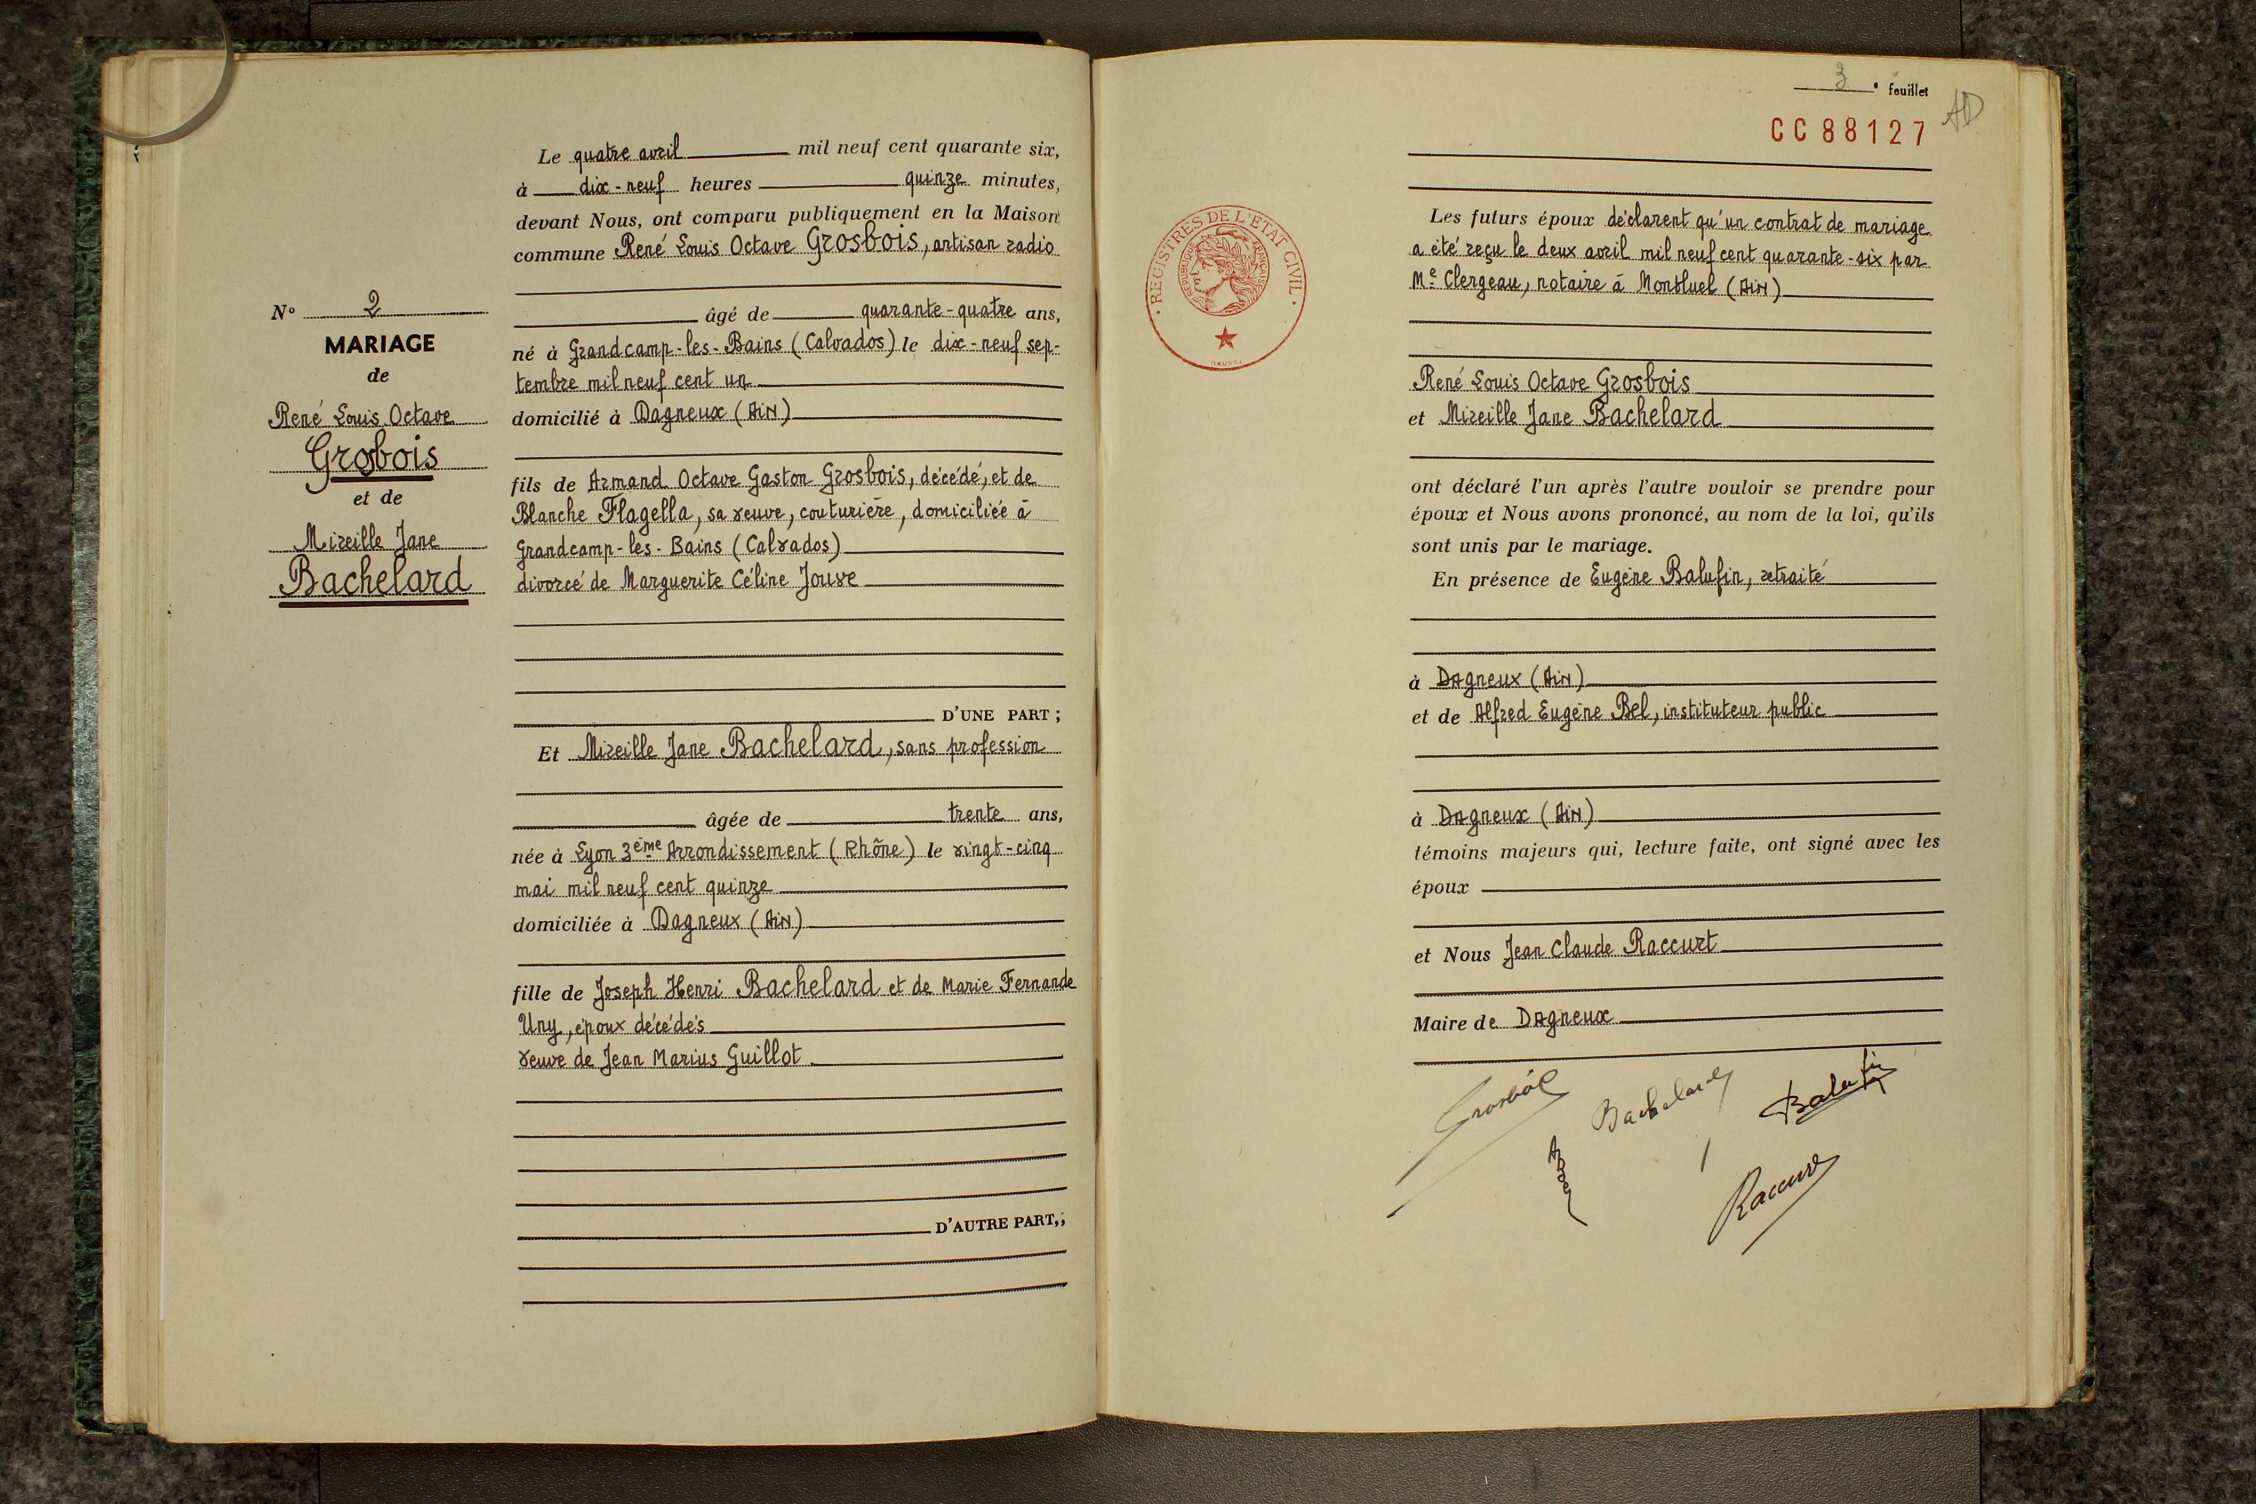 Le quatre avril mil neuf cent quarante six,
à dix-neuf heures quinze minutes,
devant Nous, ont comparu publiquement en la Maison
commune René Louis Octave Grosbois, artisan radio
âgé de quarante-quatre ans,
né à Grandcamp-les-Bains (Calvados) le dix-neuf sep-
tembre mil neuf cent un
domicilié à Dagneux (Ain)
fils de Armand Octave Gaston Grosbois, décédé, et de
Blanche Flagella, sa veuve, couturière, domiciliée à
Grandcamp-les-Bains (Calvados)
divorcé de Marguerite Céline Jouve
D'UNE PART ;
Et Mireille Jane Bachelard, sans profession
âgée de trente ans,
née à Lyon 3ème Arrondissement (Rhône) le vingt-cinq
mai mil neuf cent quinze
domiciliée à Dagneux (Ain)
fille de Joseph Henri Bachelard et de Marie Fernande
Uny, époux décédés
veuve de Jean Marius Guillot
D'AUTRE PART,;
N° 2
MARIAGE
de
René Louis Octave
Grosbois
et de
Mireille Jane
Bachelard
3e feuillet
AD
CC88127
REGISTRES DE L'ETAT CIVIL
REPUBLIQUE FRANÇAISE
Les futurs époux déclarent qu'un contrat de mariage
a été reçu le deux avril mil neuf cent quarante-six par
Me Clergeau, notaire à Montluel (Ain)
René Louis Octave Grosbois
et Mireille Jane Bachelard
ont déclaré l'un après l'autre vouloir se prendre pour
époux et Nous avons prononcé, au nom de la loi, qu'ils
sont unis par le mariage.
En présence de Eugène Balufin, retraité
à Dagneux (Ain)
et de Alfred Eugène Bel, instituteur public
à Dagneux (Ain)
témoins majeurs qui, lecture faite, ont signé avec les
époux
et Nous Jean Claude Raccurt
Maire de Dagneux
Grosbois
Bachelard
Balufin
Raccurt